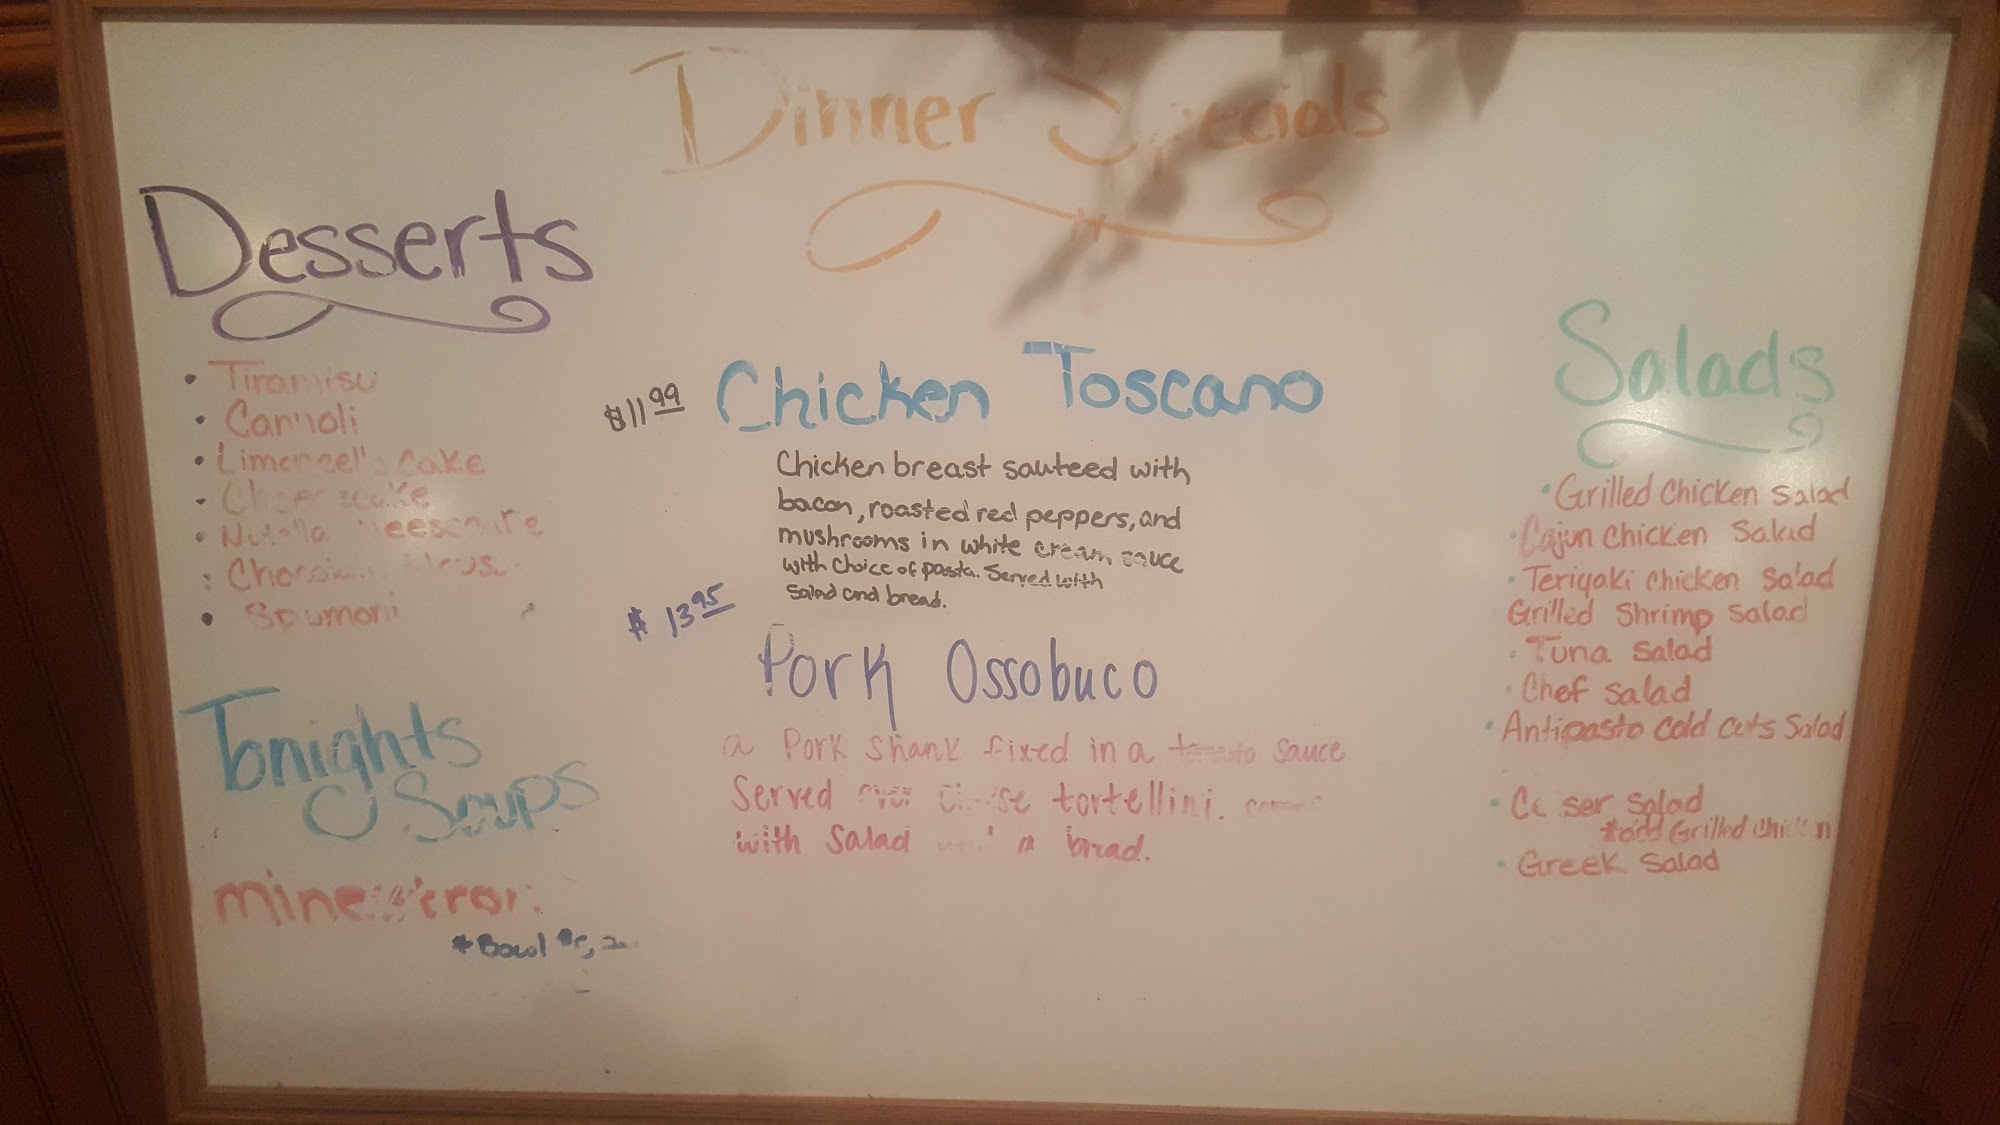 Dinner Specials
Desserts
• Tiramisu
• Cannoli
• cake
• Nutella
•
• Spumoni
Tonights
Soups
* Bowl
$11.99 Chicken Toscano
Chicken breast sauteed with
bacon, roasted red peppers, and
mushrooms in white cream sauce
with choice of pasta. Served with
Salad and bread.
$ 13.95
Pork Ossobuco
a Pork Shank fixed in a tomato Sauce
Served over tortellini.
with Salad a bread.
Salads
• Grilled Chicken Salad
• Cajun Chicken Salad
• Teriyaki Chicken Salad
Grilled Shrimp Salad
• Tuna Salad
• Chef Salad
• Antipasto Cold Cuts Salad
• Salad
*add Grilled Chicken
• Greek Salad